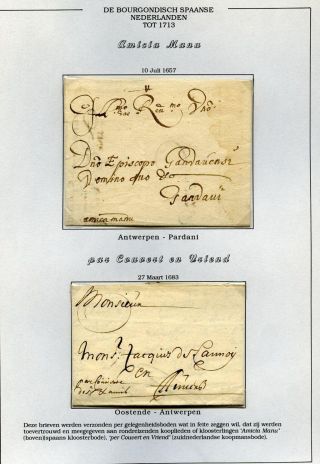 DE BOURGONDISCH SPAANSE
NEDERLANDEN
TOT 1713
Amicia Manu
10 Juli 1657
Dno Episcopo Gandavensi
Domino
Gandavi
amica manu
Antwerpen - Pardani
par Couvert en Vriend
27 Maart 1683
Monsieur
Mons. Jacques de Lannoy
en
Oostende - Antwerpen
Deze brieven werden verzonden per gelegenheidsboden wat in feite zeggen wil, dat zij werden
toevertrouwd en meegegeven aan rondreizenden kooplieden of kloosterlingen "Amicia Manu"
(boven)(spaans kloosterbode). 'per Couvert en Vriend' (zuidnederlandse koopmansbode).